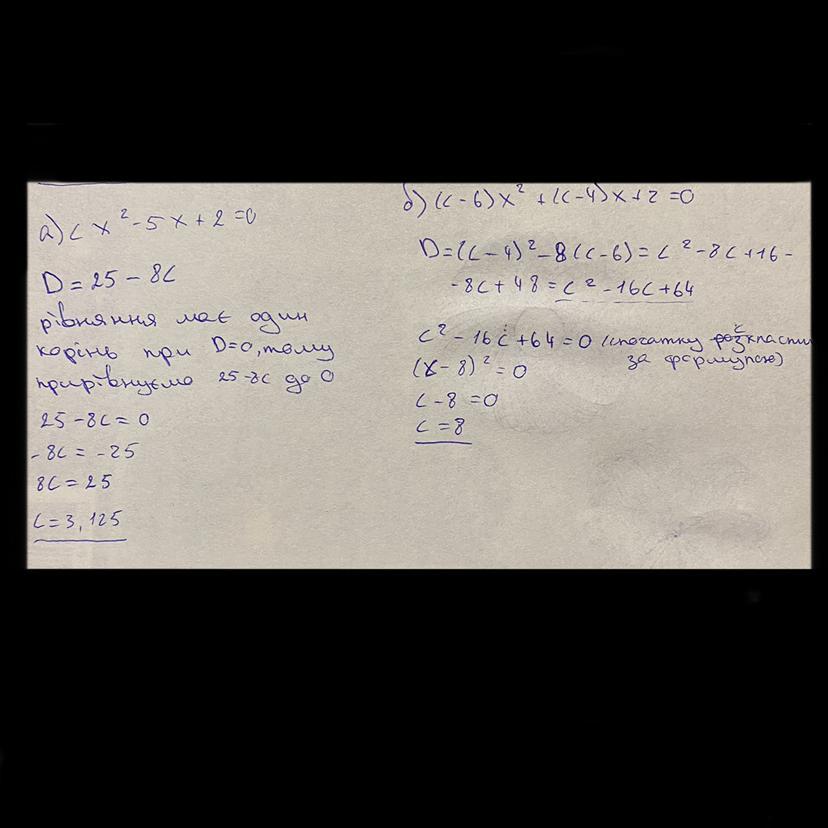 а) cx² - 5x + 2 = 0
D = 25 - 8c
рівняння має один
корінь при D=0, тому
прирівнуємо 25-8c до 0
25 - 8c = 0
-8c = -25
8c = 25
c = 3,125
б) (c-6)x² + (c-4)x + 2 = 0
D = (c-4)² - 8(c-6) = c² - 8c + 16 -
- 8c + 48 = c² - 16c + 64
c² - 16c + 64 = 0 (спочатку
за формулою)
(x-8)² = 0
c - 8 = 0
c = 8